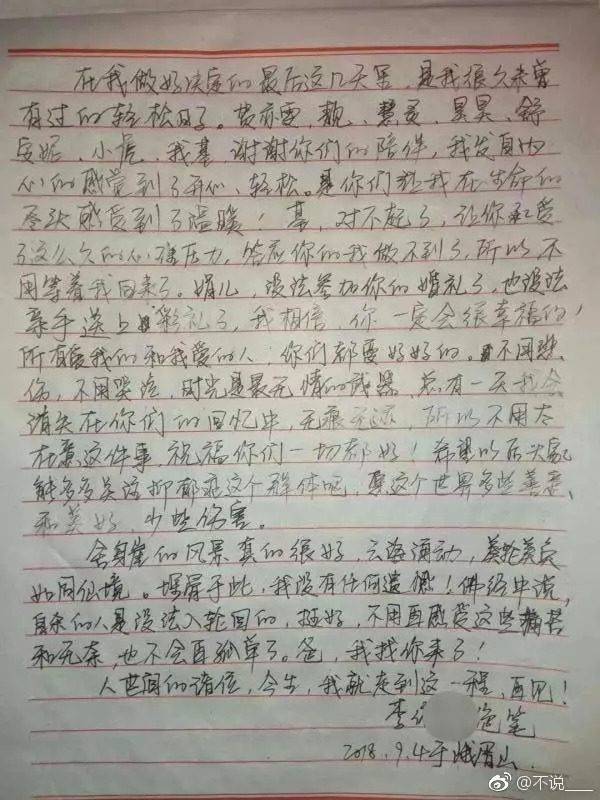 在我做好决定的最后这几天里,是我很久未曾
有过的轻松日子。黄亦雯,靓,慧灵,昊昊,舒
安妮,小虎,我基,谢谢你们的陪伴,我发自内
心的感觉到了开心、轻松。是你们让我在生命的
尽头感受到了温暖!基,对不起了,让你承受
了这么久的心理压力,答应你的我做不到了,所以不
用等着我回来了。娟儿,没法参加你的婚礼了,也没法
亲手送上彩礼了,我相信,你一定会很幸福的!
所有爱我的和我爱的人,你们都要好好的。不用悲
伤,不用哭泣,时光是最无情的武器,总有一天我会
消失在你们的回忆中,无痕无迹,所以不用太
在意这件事,祝福你们一切都好!希望以后大家
能多多关注抑郁症这个群体吧,愿这个世界多些善意、
和美好,少些伤害。
舍身崖的风景真的很好,云海涌动,
如同仙境。埋骨于此,我没有任何遗憾!佛经中说,
自杀的人是没法入轮回的,挺好,不用再感受这些痛苦
和无奈,也不会再孤单了。爸,我找你来了!
人世间的诸位,今生,我就走到这一程,再见!
李 绝笔
2018.9.4于峨眉山.
@不说___